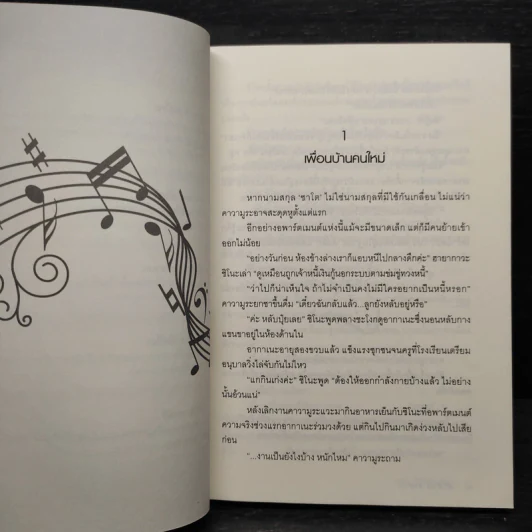 1
เพื่อนบ้านคนใหม่
หากนามสกุล ‘ซาโต’ ไม่ใช่นามสกุลที่มีใช้กันเกลื่อน ไม่แน่ว่า
คาวามุระอาจสะดุดหูตั้งแต่แรก
อีกอย่างอพาร์ตเมนต์แห่งนี้แม้จะมีขนาดเล็ก แต่ก็มีคนย้ายเข้า
ออกไม่น้อย
“อย่างวันก่อน ห้องข้างล่างเราก็แอบหนีไปกลางดึกค่ะ” ฮายากาวะ
ชิโนะเล่า “ดูเหมือนถูกเจ้าหนี้เงินกู้นอกระบบตามข่มขู่ทวงหนี้”
“ว่าไปก็น่าเห็นใจ ถ้าไม่จำเป็นคงไม่มีใครอยากเป็นหนี้หรอก”
คาวามุระยกชาขึ้นดื่ม “เดี๋ยวฉันกลับแล้ว...ลูกยังหลับอยู่หรือ”
“ค่ะ หลับปุ๋ยเลย” ชิโนะพูดพลางชะโงกดูอากาเนะซึ่งนอนหลับกาง
แขนขาอยู่ในห้องด้านใน
อากาเนะอายุสองขวบแล้ว แข็งแรงซุกซนจนครูที่โรงเรียนเตรียม
อนุบาลวิ่งไล่จับกันไม่ไหว
“แกกินเก่งค่ะ” ชิโนะพูด “ต้องให้ออกกำลังกายบ้างแล้ว ไม่อย่าง
นั้นอ้วนแน่”
หลังเลิกงานคาวามุระแวะมากินอาหารเย็นกับชิโนะที่อพาร์ตเมนต์
ความจริงช่วงแรกอากาเนะร่วมวงด้วย แต่กินไปกินมาเกิดง่วงหลับไปเสีย
ก่อน
“...งานเป็นยังไงบ้าง หนักไหม” คาวามุระถาม